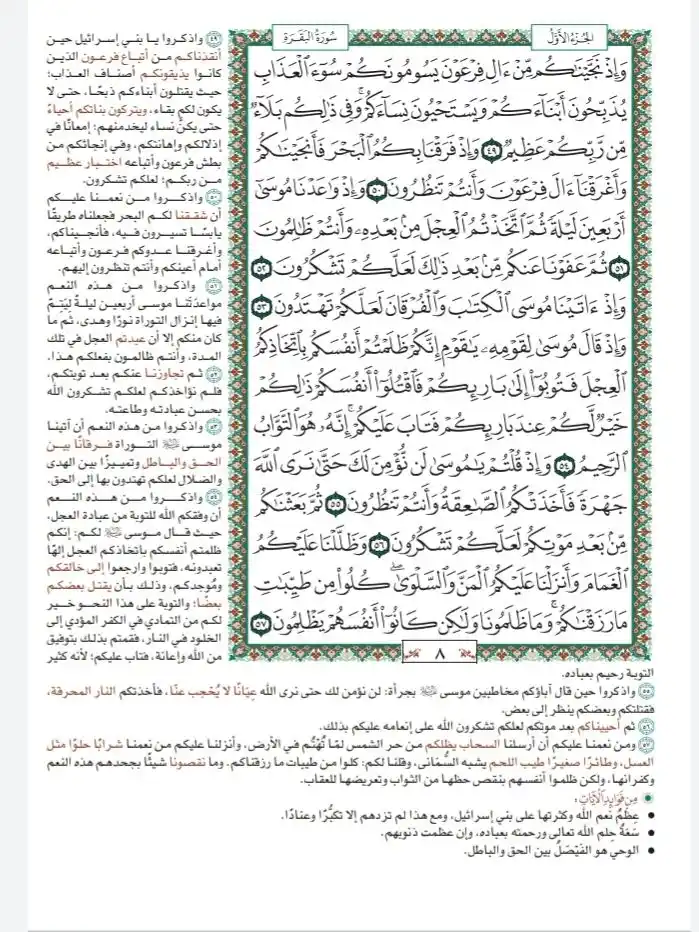 الجُزءُ الأَوَّلُ
سُورَةُ البَقَرَةِ
وَإِذۡ نَجَّيۡنَٰكُم مِّنۡ ءَالِ فِرۡعَوۡنَ يَسُومُونَكُمۡ سُوٓءَ ٱلۡعَذَابِ
يُذَبِّحُونَ أَبۡنَآءَكُمۡ وَيَسۡتَحۡيُونَ نِسَآءَكُمۡۚ وَفِي ذَٰلِكُم بَلَآءٞ
مِّن رَّبِّكُمۡ عَظِيمٞ ٤٩ وَإِذۡ فَرَقۡنَا بِكُمُ ٱلۡبَحۡرَ فَأَنجَيۡنَٰكُمۡ
وَأَغۡرَقۡنَآ ءَالَ فِرۡعَوۡنَ وَأَنتُمۡ تَنظُرُونَ ٥٠ وَإِذۡ وَٰعَدۡنَا مُوسَىٰٓ
أَرۡبَعِينَ لَيۡلَةٗ ثُمَّ ٱتَّخَذۡتُمُ ٱلۡعِجۡلَ مِنۢ بَعۡدِهِۦ وَأَنتُمۡ ظَٰلِمُونَ
٥١ ثُمَّ عَفَوۡنَا عَنكُم مِّنۢ بَعۡدِ ذَٰلِكَ لَعَلَّكُمۡ تَشۡكُرُونَ ٥٢
وَإِذۡ ءَاتَيۡنَا مُوسَى ٱلۡكِتَٰبَ وَٱلۡفُرۡقَانَ لَعَلَّكُمۡ تَهۡتَدُونَ ٥٣
وَإِذۡ قَالَ مُوسَىٰ لِقَوۡمِهِۦ يَٰقَوۡمِ إِنَّكُمۡ ظَلَمۡتُمۡ أَنفُسَكُم بِٱتِّخَاذِكُمُ
ٱلۡعِجۡلَ فَتُوبُوٓاْ إِلَىٰ بَارِئِكُمۡ فَٱقۡتُلُوٓاْ أَنفُسَكُمۡ ذَٰلِكُمۡ
خَيۡرٞ لَّكُمۡ عِندَ بَارِئِكُمۡ فَتَابَ عَلَيۡكُمۡۚ إِنَّهُۥ هُوَ ٱلتَّوَّابُ
ٱلرَّحِيمُ ٥٤ وَإِذۡ قُلۡتُمۡ يَٰمُوسَىٰ لَن نُّؤۡمِنَ لَكَ حَتَّىٰ نَرَى ٱللَّهَ
جَهۡرَةٗ فَأَخَذَتۡكُمُ ٱلصَّٰعِقَةُ وَأَنتُمۡ تَنظُرُونَ ٥٥ ثُمَّ بَعَثۡنَٰكُم
مِّنۢ بَعۡدِ مَوۡتِكُمۡ لَعَلَّكُمۡ تَشۡكُرُونَ ٥٦ وَظَلَّلۡنَا عَلَيۡكُمُ
ٱلۡغَمَامَ وَأَنزَلۡنَا عَلَيۡكُمُ ٱلۡمَنَّ وَٱلسَّلۡوَىٰۖ كُلُواْ مِن طَيِّبَٰتِ
مَا رَزَقۡنَٰكُمۡۚ وَمَا ظَلَمُونَا وَلَٰكِن كَانُوٓاْ أَنفُسَهُمۡ يَظۡلِمُونَ ٥٧
٨
٤٩ واذكروا يا بني إسرائيل حين
أنقذناكم من أتباع فرعون الذين
كانوا يذيقونكم أصناف العذاب؛
حيث يقتلون أبناءكم ذبحًا، حتى لا
يكون لكم بقاء، ويتركون بناتكم أحياءً
حتى يكنَّ نساء ليخدمنهم؛ إمعانًا في
إذلالكم وإهانتكم، وفي إنجائكم من
بطش فرعون وأتباعه اختبار عظيم
من ربكم؛ لعلكم تشكرون.
٥٠ واذكروا من نعمنا عليكم
أن شققنا لكم البحر فجعلناه طريقًا
يابسًا تسيرون فيه، فأنجيناكم،
وأغرقنا عدوكم فرعون وأتباعه
أمام أعينكم وأنتم تنظرون إليهم.
٥١ واذكروا من هذه النعم
مواعدَتَنا موسى أربعين ليلةً لِيَتِمّ
فيها إنزال التوراة نورًا وهدى، ثم ما
كان منكم إلا أن عبدتم العجل في تلك
المدة، وأنتم ظالمون بفعلكم هذا.
٥٢ ثم تجاوزنا عنكم بعد توبتكم،
فلم نؤاخذكم لعلكم تشكرون الله
بحسن عبادته وطاعته.
٥٣ واذكروا من هذه النعم أن آتينا
موسى ﷺ التوراة فرقانًا بين
الحق والباطل وتمييزًا بين الهدى
والضلال لعلكم تهتدون بها إلى الحق.
٥٤ واذكروا من هذه النعم
أن وفقكم الله للتوبة من عبادة العجل،
حيث قال موسى ﷺ لكم: إنكم
ظلمتم أنفسكم باتخاذكم العجل إلهًا
تعبدونه، فتوبوا وارجعوا إلى خالقكم
ومُوجدكم، وذلك بأن يقتل بعضكم
بعضًا؛ والتوبة على هذا النحو خير
لكم من التمادي في الكفر المؤدي إلى
الخلود في النار، فقمتم بذلك بتوفيق
من الله وإعانة، فتاب عليكم؛ لأنه كثير
التوبة رحيم بعباده.
٥٥ واذكروا حين قال آباؤكم مخاطبين موسى ﷺ بجرأة: لن نؤمن لك حتى نرى الله عِيَانًا لا يُحْجب عنّا، فأخذتكم النار المحرقة،
فقتلتكم وبعضكم ينظر إلى بعض.
٥٦ ثم أحييناكم بعد موتكم لعلكم تشكرون الله على إنعامه عليكم بذلك.
٥٧ ومن نعمنا عليكم أن أرسلنا السحاب يظلكم من حر الشمس لمّا تُهْتُم في الأرض، وأنزلنا عليكم من نعمنا شرابًا حلوًا مثل
العسل، وطائرًا صغيرًا طيب اللحم يشبه السُّمَانى، وقلنا لكم: كلوا من طيبات ما رزقناكم. وما نقصونا شيئًا بجحدهم هذه النعم
وكفرانها، ولكن ظلموا أنفسهم بنقص حظها من الثواب وتعريضها للعقاب.
مِن فَوَائِدِ الآيَاتِ:
• عِظَمُ نعم الله وكثرتها على بني إسرائيل، ومع هذا لم تزدهم إلا تكبُّرًا وعنادًا.
• سَعَةُ حِلم الله تعالى ورحمته بعباده، وإن عظمت ذنوبهم.
• الوحي هو الفَيْصَلُ بين الحق والباطل.